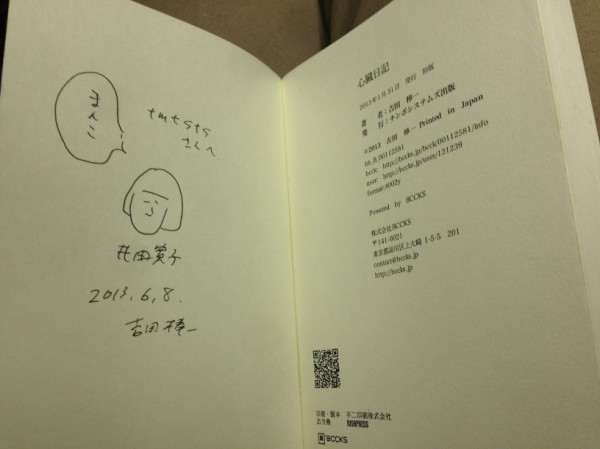 まんこ
tmtsts
さんへ
2013.6.8.
吉田棒一
心臓日記
2013年1月31日 発行 初版
著 者:吉田 棒一
発 行:チンポシステムズ出版
©2013 吉田 棒一 Printed in Japan
bb_B_00112581
bcck: http://bccks.jp/bcck/00112581/info
user: http://bccks.jp/user/121239
format:#002y
Powered by BCCKS
株式会社BCCKS
〒141-0021
東京都品川区上大崎 1-5-5 201
contact@bccks.jp
http://bccks.jp
印刷・製本 不二印刷株式会社
出力機 RISAPRESS
BCCKS